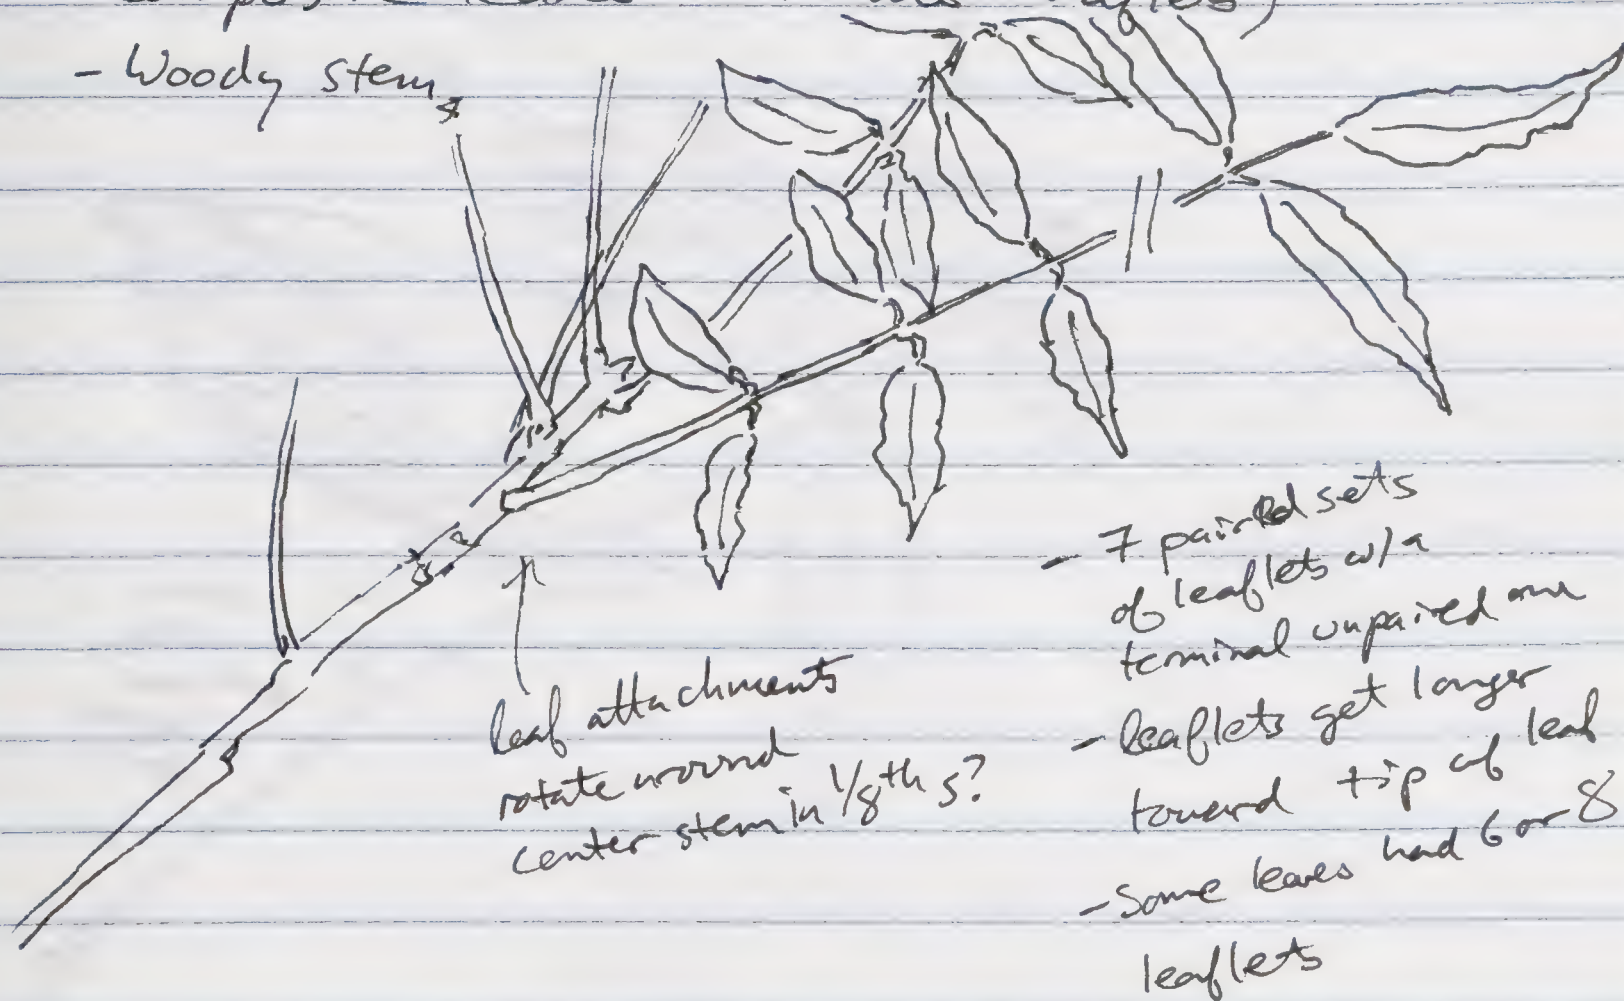 leaves
- Woody stem
leaf attachments
rotate around
center stem in 1/8th s?
- 7 paired sets
of leaflets w/a
terminal unpaired one
- leaflets get longer
toward tip of leaf
- Some leaves had 6 or 8
leaflets